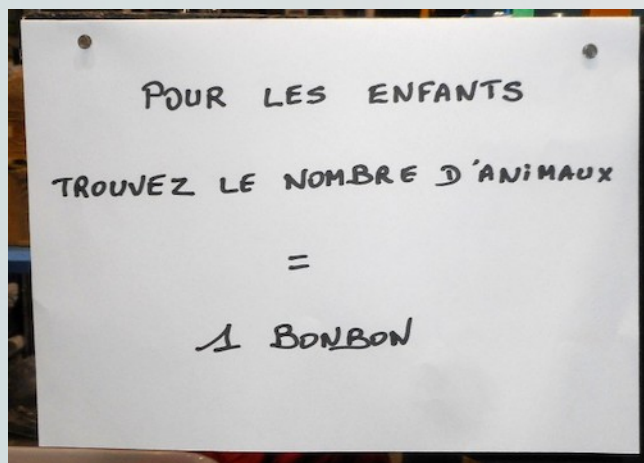 POUR LES ENFANTS
TROUVEZ LE NOMBRE D'ANIMAUX
=
1 BONBON